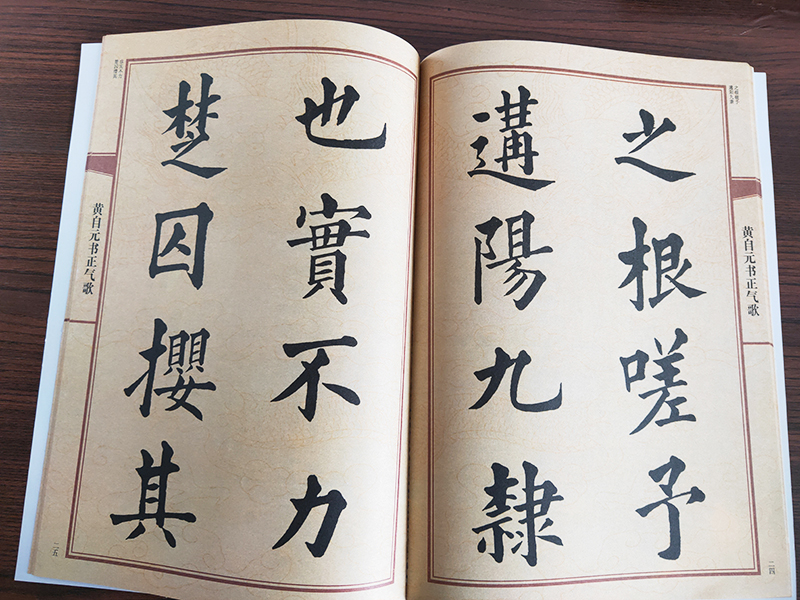 黄自元书正气歌
之根嗟予
遘陽九隸
二四
也實不力
楚囚攖其
黄自元书正气歌
二五